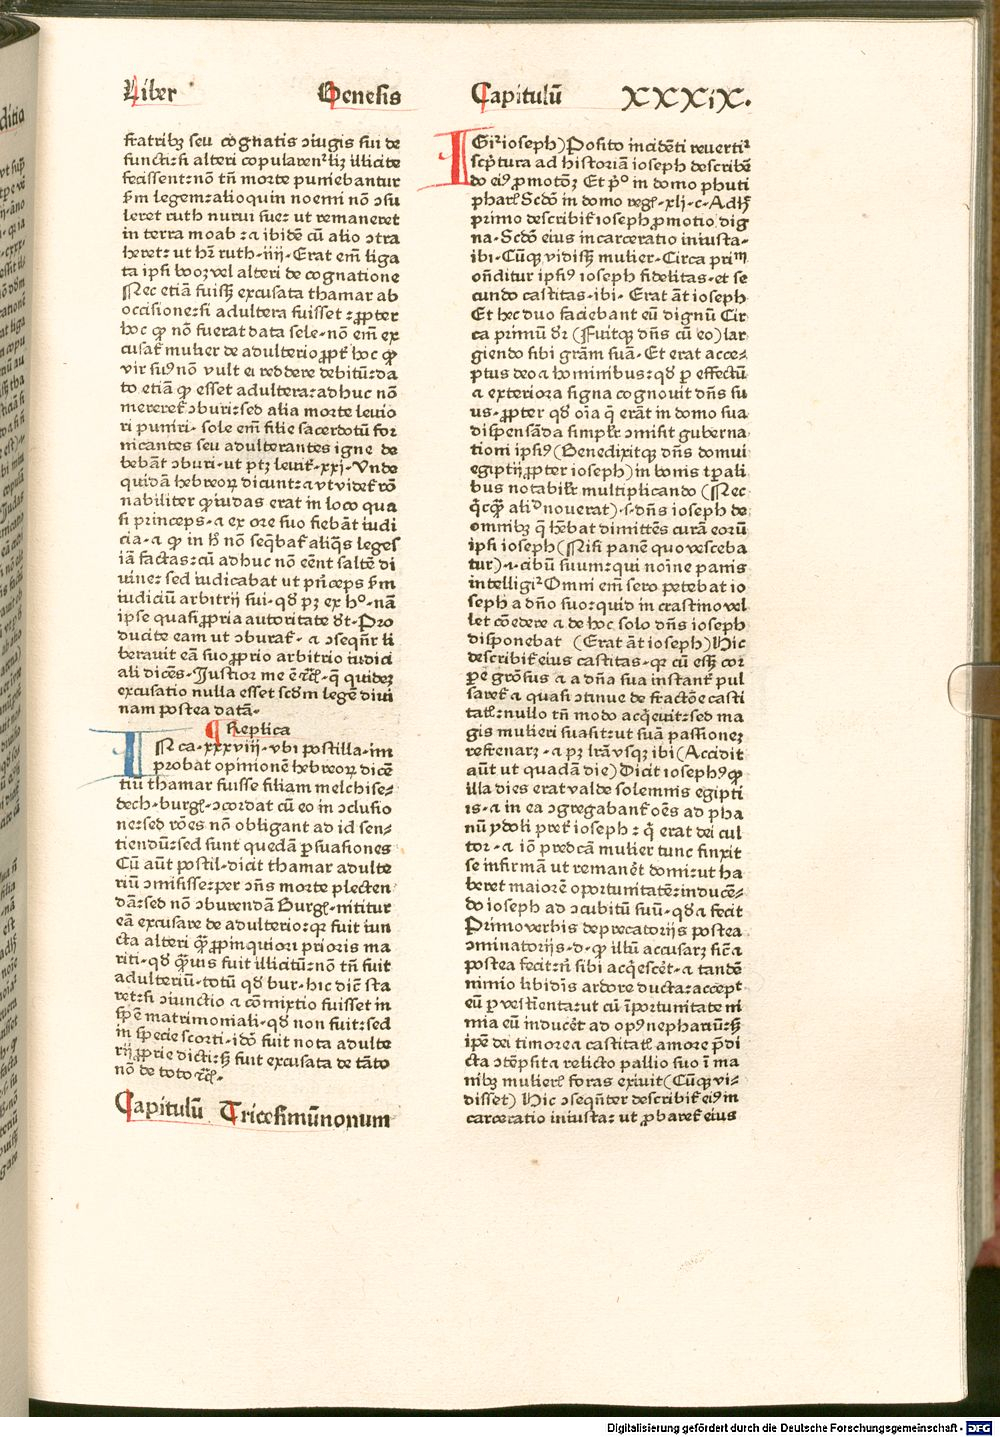 Liber Genesis Capitulū XXXIX.
fratribꝫ seu cognatis ɔiugis sui de
functi:si alteri copularenᷣ:lꝫ illicite
fecissent:nō tn̄ morte puniebantur
ẜm legem:alioquin noemi nō ɔsu
leret ruth nurui sue: ut remaneret
in terra moab : ⁊ ibidē cū alio ɔtra
heret: ut hr̄ ruth·iiij·Erat em̄ liga
ta ipsi booz vel alteri de cognatione
Nec etiā fuisset excusata thamar ab
occisione:si adultera fuisset : ꝓpter
hoc ꝙ nō fuerat data sele·nō em̄ ex
cusat᷑ mulier de adulterio ꝓpt᷑ hoc ꝙ
vir suꝰ nō vult ei reddere debitū:da
to etiā ꝙ esset adultera: adhuc nō
mereret᷑ ɔburi: sed alia morte leuio
ri puniri· sole em̄ filie sacerdotū for
nicantes seu adulterantes igne de
bebāt ɔburi·ut ptꝫ leuit᷑·xxj·Unde
quidā hebreoꝝ dicunt: ⁊ vt videt᷑ rō
nabiliter ꝙ iudas erat in loco qua
si princeps·⁊ ex ore suo fiebāt iudi
cia·⁊ ꝙ in hꝰ nō seq̄bat᷑ aliq̄s leges
iā factas:cū adhuc nō eēnt saltē di
uine: sed iudicabat ut prīceps ẜm
iudiciū arbitrij sui·qđ pꝫ ex hᵒ·nā
ipse quasi ꝓpria autoritate dr̄·Pro
ducite eam ut ɔburat᷑·⁊ ɔseqn̄r li
berauit eā suo ꝓprio arbitrio iudici
ali dicēs·Justior me ē ⁊c̄·q̄ quideꝫ
excusatio nulla esset scđm legē diui
nam postea datā·
Replica
IN ca·xxxviij·vbi postilla·im
probat opinionē hebreoꝝ dicē
tiū thamar fuisse filiam melchise⸗
dech·burgᷤ·ɔcordat cū eo in ɔclusio
ne:sed rōes nō obligant ad id sen⸗
tiendū:sed sunt quedā ꝑsuasiones
Cū aūt postil·dicit thamar adulte
riū ɔmisisse:per ɔn̄s morte plecten
dā:sed nō ɔburendā Burgᷤ·nititur
eā excusare de adulterio:qꝛ fuit iun
cta alteri q̄ꝫ ꝓpinquiori prioris ma
riti·qđ q̄ꝫuis fuit illicitū:nō tn̄ fuit
adulteriū·totū qđ bur·hic dic̄ sta
ret:si ɔiunctio ⁊ cōmixtio fuisset in
spē matrimoniali·qđ non fuit:sed
in specie scorti·idō fuit nota adulte
rij ꝓprie dicti:sꝫ fuit excusata de tāto
nō de toto ⁊c̄·
Capitulū Tricesimūnonum
IGit᷑ ioseph) Posito incidēti reuertiᷣ
scptura ad historiā ioseph describē
do eiꝰ ꝓmotōꝫ Et pᵒ in domo phuti
pharᷤ Scđo in domo regᷤ·xlj·c·Adhuc
primo describit᷑ ioseph ꝓmotio dig
na·Scđo eius incarceratio iniusta⸗
ibi·Cūqꝫ vidissꝫ mulier·Circa primᵐ
on̄ditur ipsiꝰ ioseph fidelitas·et se
cundo castitas·ibi·Erat āt ioseph
Et hec duo faciebant eū dignū Cir
ca primū dr̄ (Fuitqꝫ dn̄s cū eo) lar
giendo sibi grām suā·Et erat acce⸗
ptus deo ⁊ hominibus: qđ ꝑ effectū
⁊ exteriora signa cognouit dn̄s su
us·ꝓpter qđ oīa q̄ erāt in domo sua
dispensāda simplr̄ ɔmisit guberna
tioni ipsiꝰ (Benedixitqꝫ dn̄s domui
egiptij ꝓpter ioseph) in bonis tꝑali
bus notabilr̄ multiplicando (Nec
q̄cq̄ꝫ aliđ nouerat) ·s·dn̄s ioseph de
omnibꝫ q̄ hēbat dimittēs curā eorū
ipsi ioseph (Nisi panē quo vesceba
tur)·i·cibū suum:qui noīne panis
intelligiᷣ Omni em̄ sero petebat io
seph a dn̄o suo:quid in crastino vel
let cōedere ⁊ de hoc solo dn̄s ioseph
disponebat (Erat āt ioseph) Hic
describit᷑ eius castitas·qꝛ cū essꝫ cor
ꝑe grōsus ⁊ a dn̄a sua instant᷑ pul
saret᷑ ⁊ quasi ɔtinue de fractōe casti
tatᷤ: nullo tn̄ modo acq̄euit: sed ma
gis mulieri suasit: ut suā passioneꝫ
refrenarꝫ·⁊ pꝫ lr̄a vsqꝫ ibi (Accidit
aūt ut quadā die) Dicit iosephꝰ ꝙ
illa dies erat valde solemnis egipti
is·⁊ in ea ɔgregabant᷑ oēs ad pha
nū ydoli pret᷑ ioseph : q̄ erat dei cul
tor·⁊ iō predcā mulier tunc finxit
se infirmā ut remanēt domi: ut ha
beret maiorē oportunitatē: inducē⸗
do ioseph ad ɔcubitū suū·qđ ⁊ fecit
Primo verbis deprecatorijs postea
ɔminatorijs·d·ꝙ illū accusarꝫ sic̄ ⁊
postea fecit: nī sibi acq̄escēt·⁊ tandē
nimio libidīs ardore ducta: accepit
eū ꝑ vestīenta: ut cū īportunitate ni
mia eū inducēt ad opꝰ nephariū: sꝫ
ipē dei timore ⁊ castitatᷤ amore p̄di
cta ɔtēpsit ⁊ relicto pallio suo ī ma
nibꝫ mulierᷤ foras exiuit (Cūqꝫ vi⸗
disset) Hic ɔseqn̄ter describit᷑ eiꝰ in
carceratio iniusta: ut ꝓbaret᷑ eius
Digitalisierung gefördert durch die Deutsche Forschungsgemeinschaft - DFG